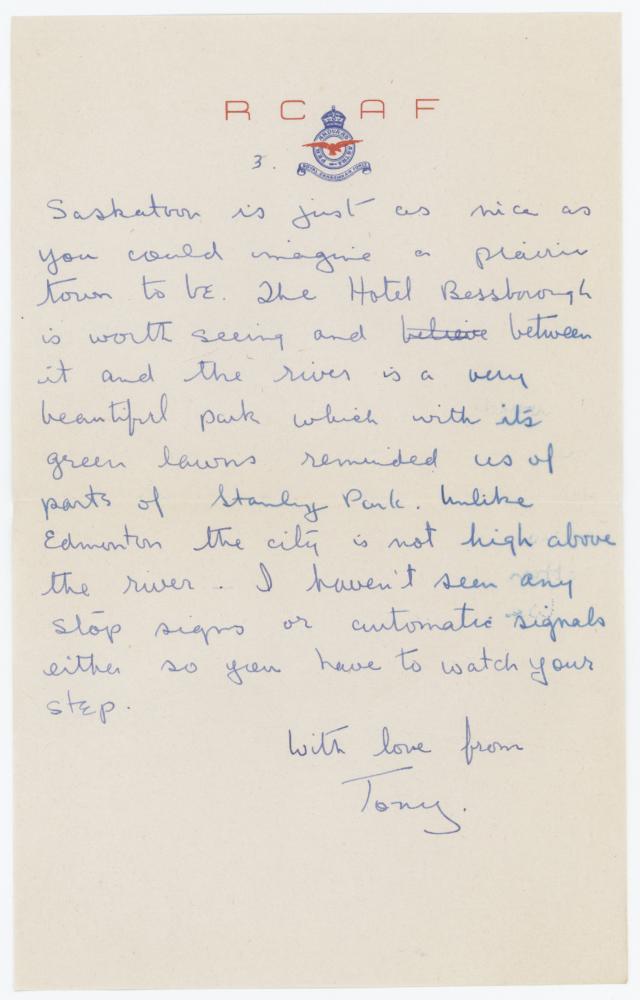 R C A F
PER ARDUA AD ASTRA
ROYAL CANADIAN AIR FORCE
3.
Saskatoon is just as nice as
you could imagine a prairie
town to be. The Hotel Bessborough
is worth seeing and ~~believe~~ between
it and the river is a very
beautiful park which with its
green lawns reminded us of
parts of Stanley Park. Unlike
Edmonton the city is not high above
the river. I haven't seen any
stop signs or automatic signals
either so you have to watch your
step.
With love from
Tony.